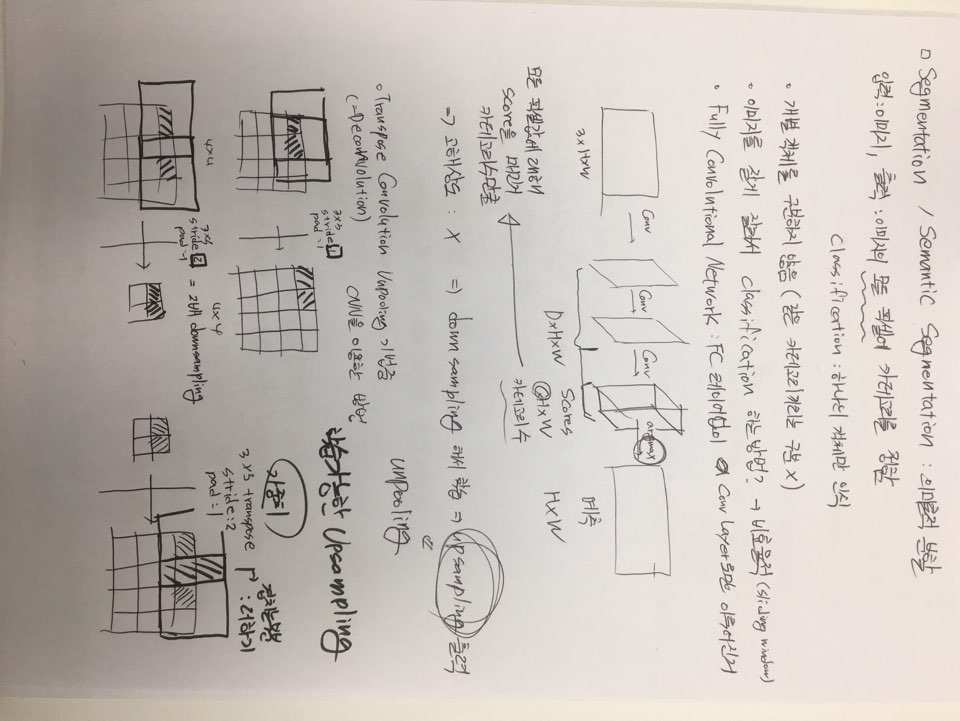 □ Segmentation / Semantic Segmentation : 의미론적 분할
입력:이미지, 출력 : 이미지의 모든 픽셀에 카테고리를 정함
classification : 하나의 객체만 인식
• 개별 객체를 구분하지 않음 (같은 카테고리끼리는 구분 X)
• 이미지를 잘게 잘라서 classification 하는방법? → 비효율적 (sliding window)
• Fully Convolutional Network : FC 레이어없이 Conv Layer로만 이루어진거
Conv Conv Conv argmax
3xHxW
DxHxW
Scores
CxHxW
카테고리 수
예측
HxW
모든 픽셀값에 대해
Score을 매긴거
카테고리수만큼
=> 고해상도 : X => down sampling 해서 학습 => upsampling 출력
unpooling
◦ Transpose Convolution Unpooling 기법중
(=Deconvolution) CNN을 이용한 방법
학습가능한 Upsampling
3x3
stride:1
pad:1
4x4
4x4
3x3
stride:2
pad:1
= 2배 downsampling
가중치
3x3 transpose
stride:2
pad:1
겹치는부분
:더하기